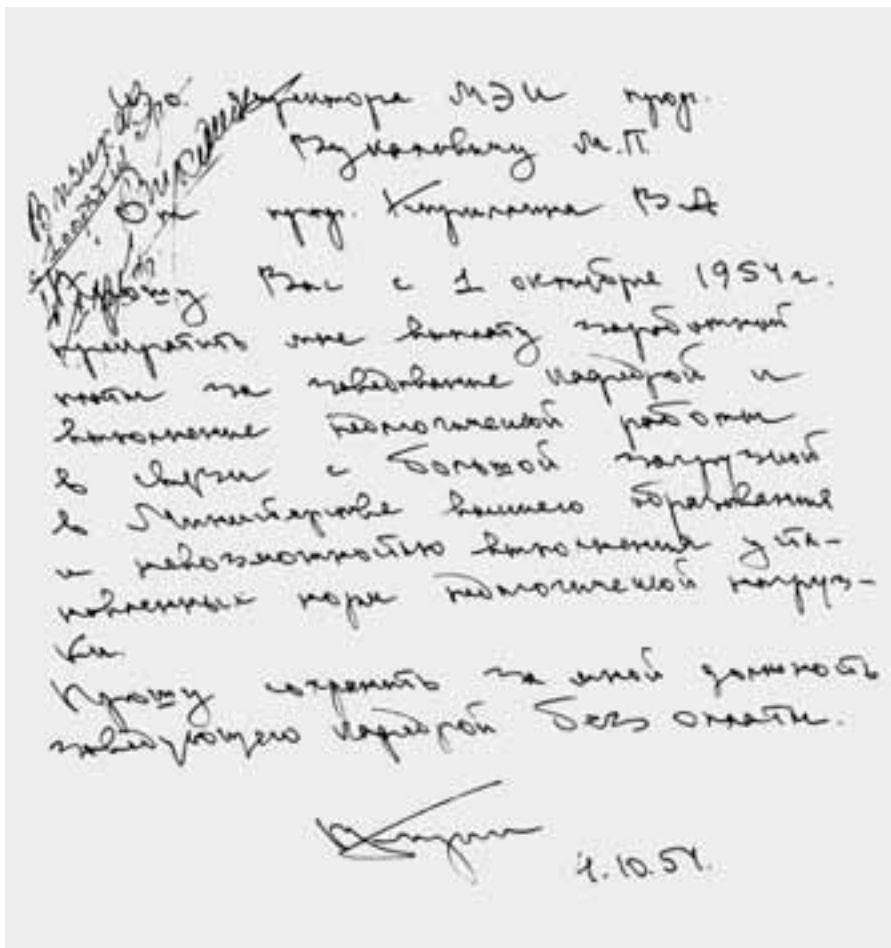 Вр. директора МЭИ проф.
Вукаловичу М.П.
От проф. Кириллина В А
Прошу Вас с 1 октября 1954 г.
прекратить мне выплату заработной
платы за заведование кафедрой и
выполнение педагогической работы
в связи с большой загрузкой
в Министерстве высшего образования
и невозможностью выполнения уста-
новленных норм педагогической нагруз-
ки.
Прошу сохранить за мной должность
заведующего кафедрой без оплаты.
1.10.54.